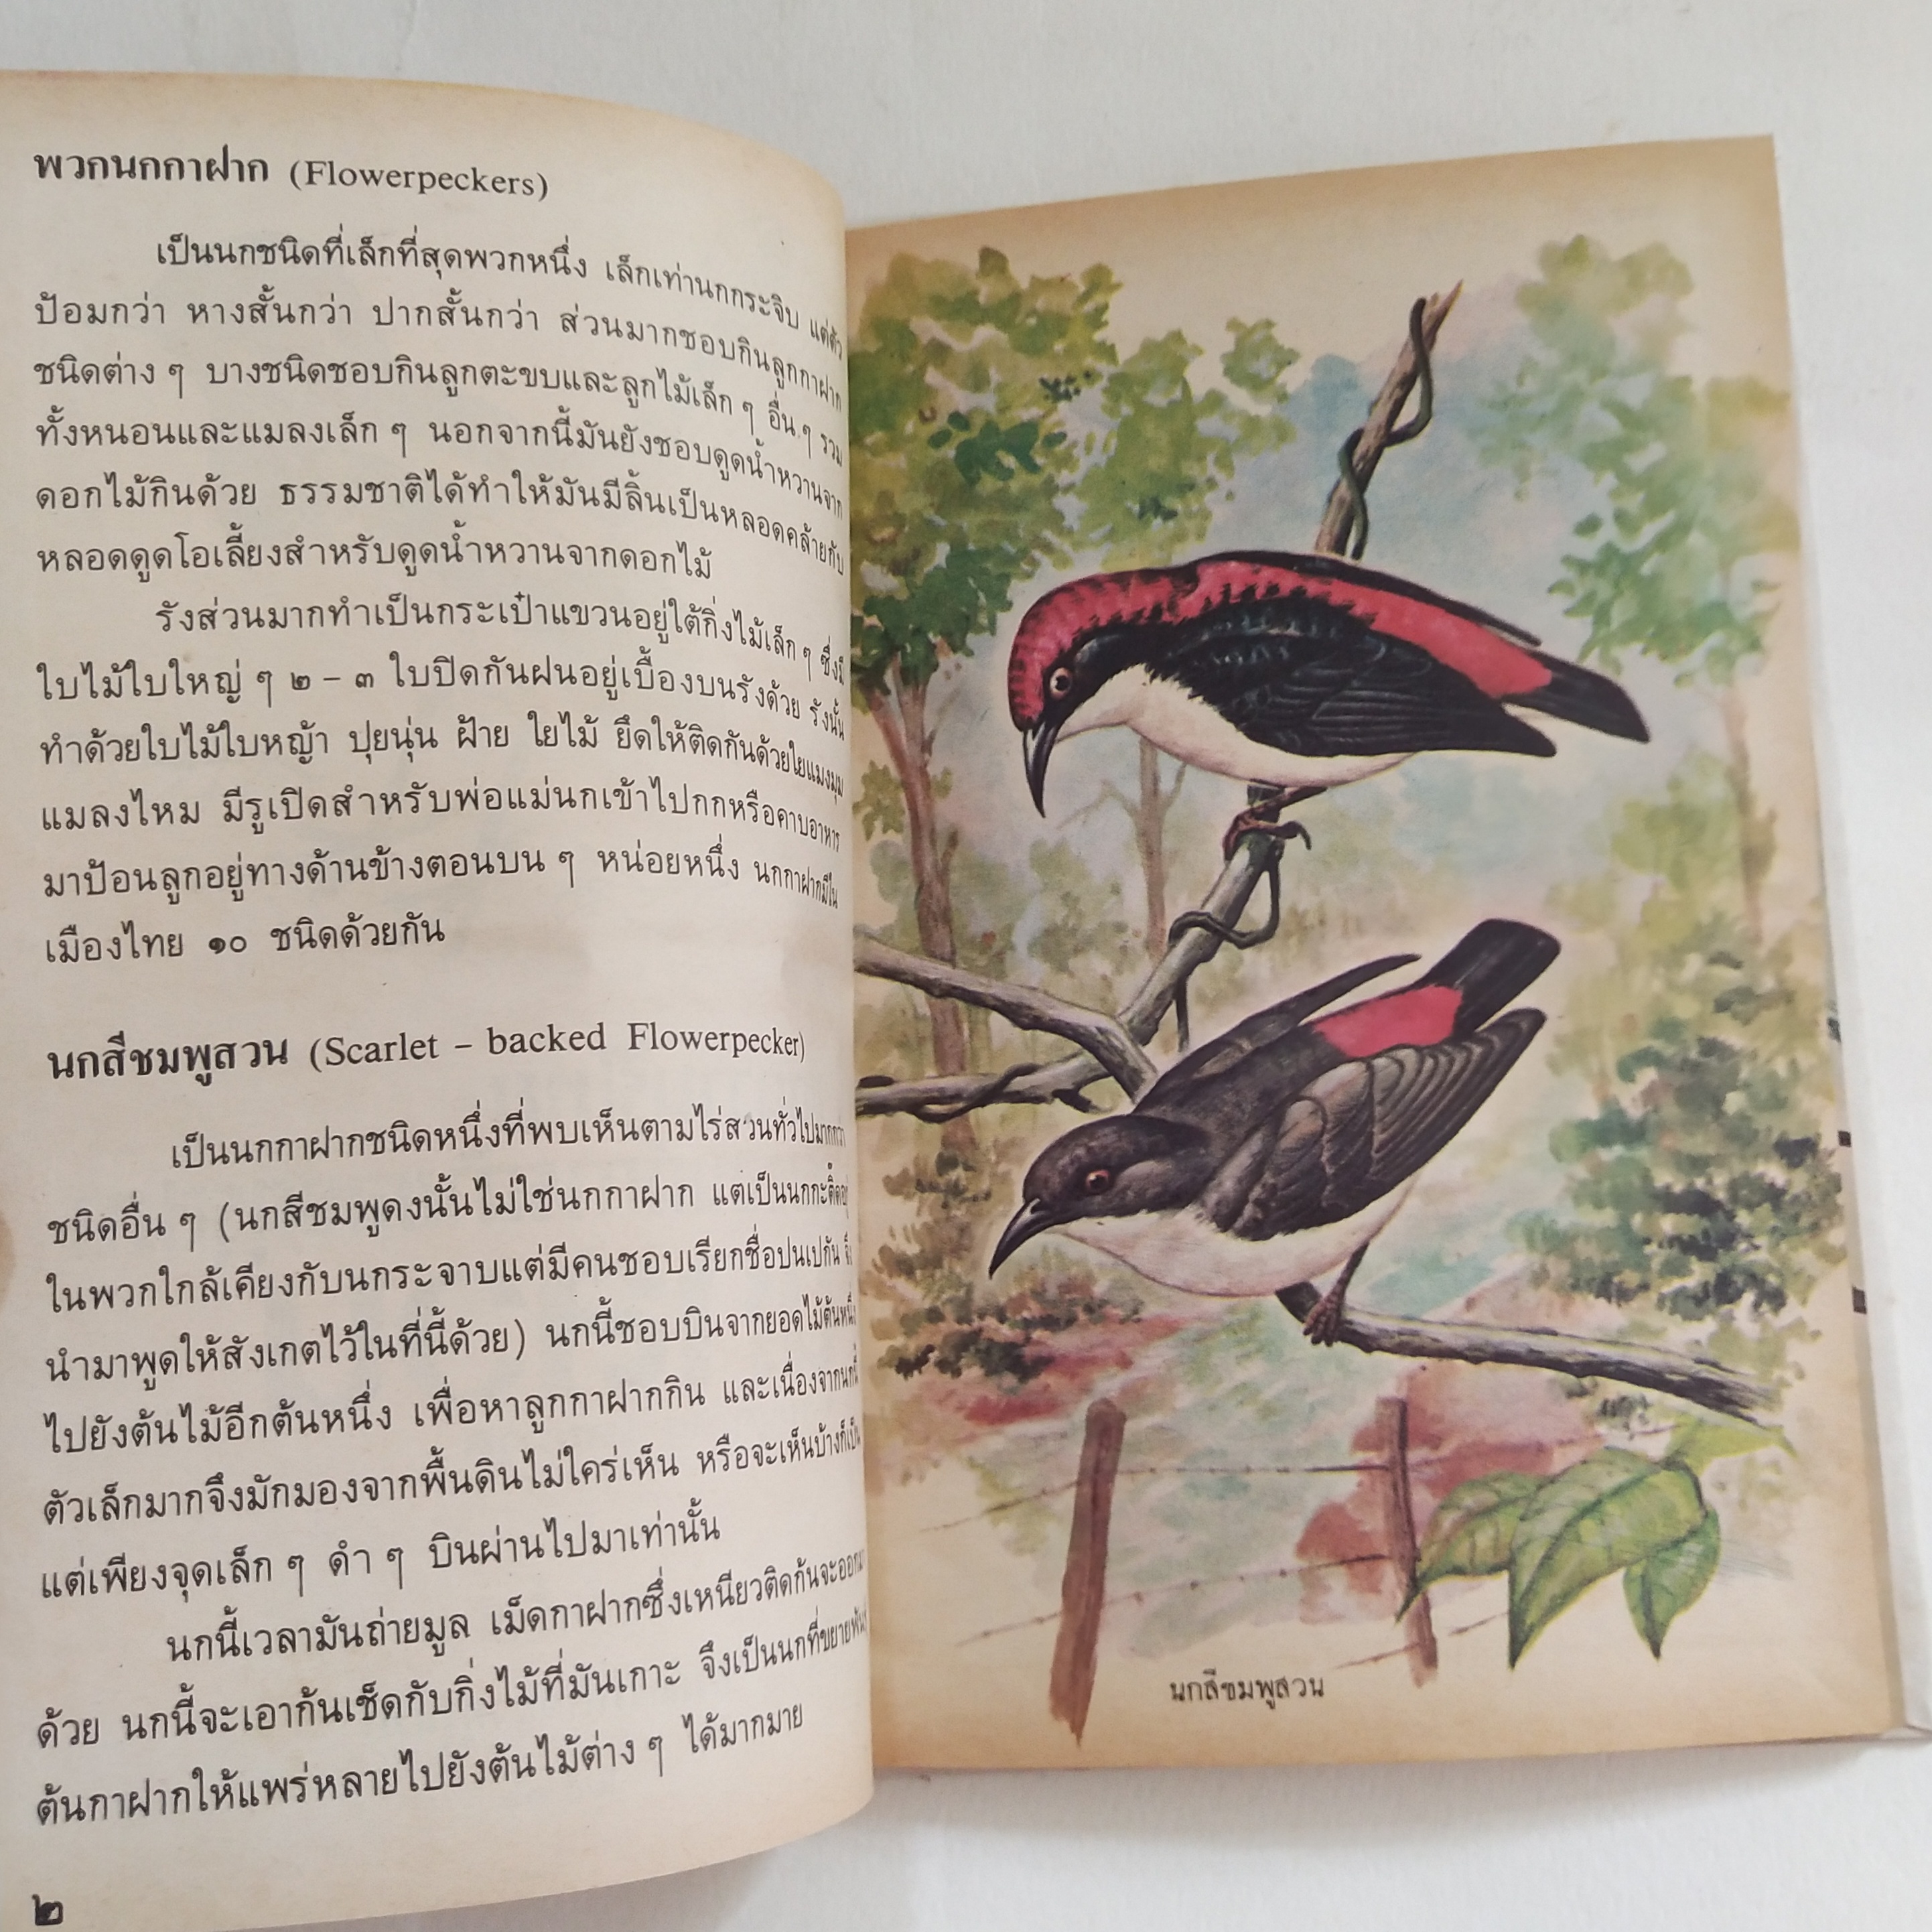 พวกนกกาฝาก (Flowerpeckers)
เป็นนกชนิดที่เล็กที่สุดพวกหนึ่ง เล็กเท่านกกระจิบ แต่ตัว
ป้อมกว่า หางสั้นกว่า ปากสั้นกว่า ส่วนมากชอบกินลูกกาฝาก
ชนิดต่าง ๆ บางชนิดชอบกินลูกตะขบและลูกไม้เล็ก ๆ อื่น ๆ รวม
ทั้งหนอนและแมลงเล็ก ๆ นอกจากนี้มันยังชอบดูดน้ำหวานจาก
ดอกไม้กินด้วย ธรรมชาติได้ทำให้มันมีลิ้นเป็นหลอดคล้ายกับ
หลอดดูดโอเลี้ยงสำหรับดูดน้ำหวานจากดอกไม้
รังส่วนมากทำเป็นกระเป๋าแขวนอยู่ใต้กิ่งไม้เล็ก ๆ ซึ่งมี
ใบไม้ใบใหญ่ ๆ ๒ – ๓ ใบปิดกันฝนอยู่เบื้องบนรังด้วย รังนั้น
ทำด้วยใบไม้ใบหญ้า ปุยนุ่น ฝ้าย ใยไม้ ยึดให้ติดกันด้วยใยแมงมุม
แมลงไหม มีรูเปิดสำหรับพ่อแม่นกเข้าไปกกหรือคาบอาหาร
มาป้อนลูกอยู่ทางด้านข้างตอนบน ๆ หน่อยหนึ่ง นกกาฝากมีใน
เมืองไทย ๑๐ ชนิดด้วยกัน
นกสีชมพูสวน (Scarlet – backed Flowerpecker)
เป็นนกกาฝากชนิดหนึ่งที่พบเห็นตามไร่สวนทั่วไปมากกว่า
ชนิดอื่น ๆ (นกสีชมพูดงนั้นไม่ใช่นกกาฝาก แต่เป็นนกกะติ๊ดอยู่
ในพวกใกล้เคียงกับนกระจาบแต่มีคนชอบเรียกชื่อปนเปกัน จึง
นำมาพูดให้สังเกตไว้ในที่นี้ด้วย) นกนี้ชอบบินจากยอดไม้ต้นหนึ่ง
ไปยังต้นไม้อีกต้นหนึ่ง เพื่อหาลูกกาฝากกิน และเนื่องจากนกนี้
ตัวเล็กมากจึงมักมองจากพื้นดินไม่ใคร่เห็น หรือจะเห็นบ้างก็เป็น
แต่เพียงจุดเล็ก ๆ ดำ ๆ บินผ่านไปมาเท่านั้น
นกนี้เวลามันถ่ายมูล เม็ดกาฝากซึ่งเหนียวติดก้นจะออกมา
ด้วย นกนี้จะเอาก้นเช็ดกับกิ่งไม้ที่มันเกาะ จึงเป็นนกที่ขยายพันธุ์
ต้นกาฝากให้แพร่หลายไปยังต้นไม้ต่าง ๆ ได้มากมาย
๒
นกสีชมพูสวน